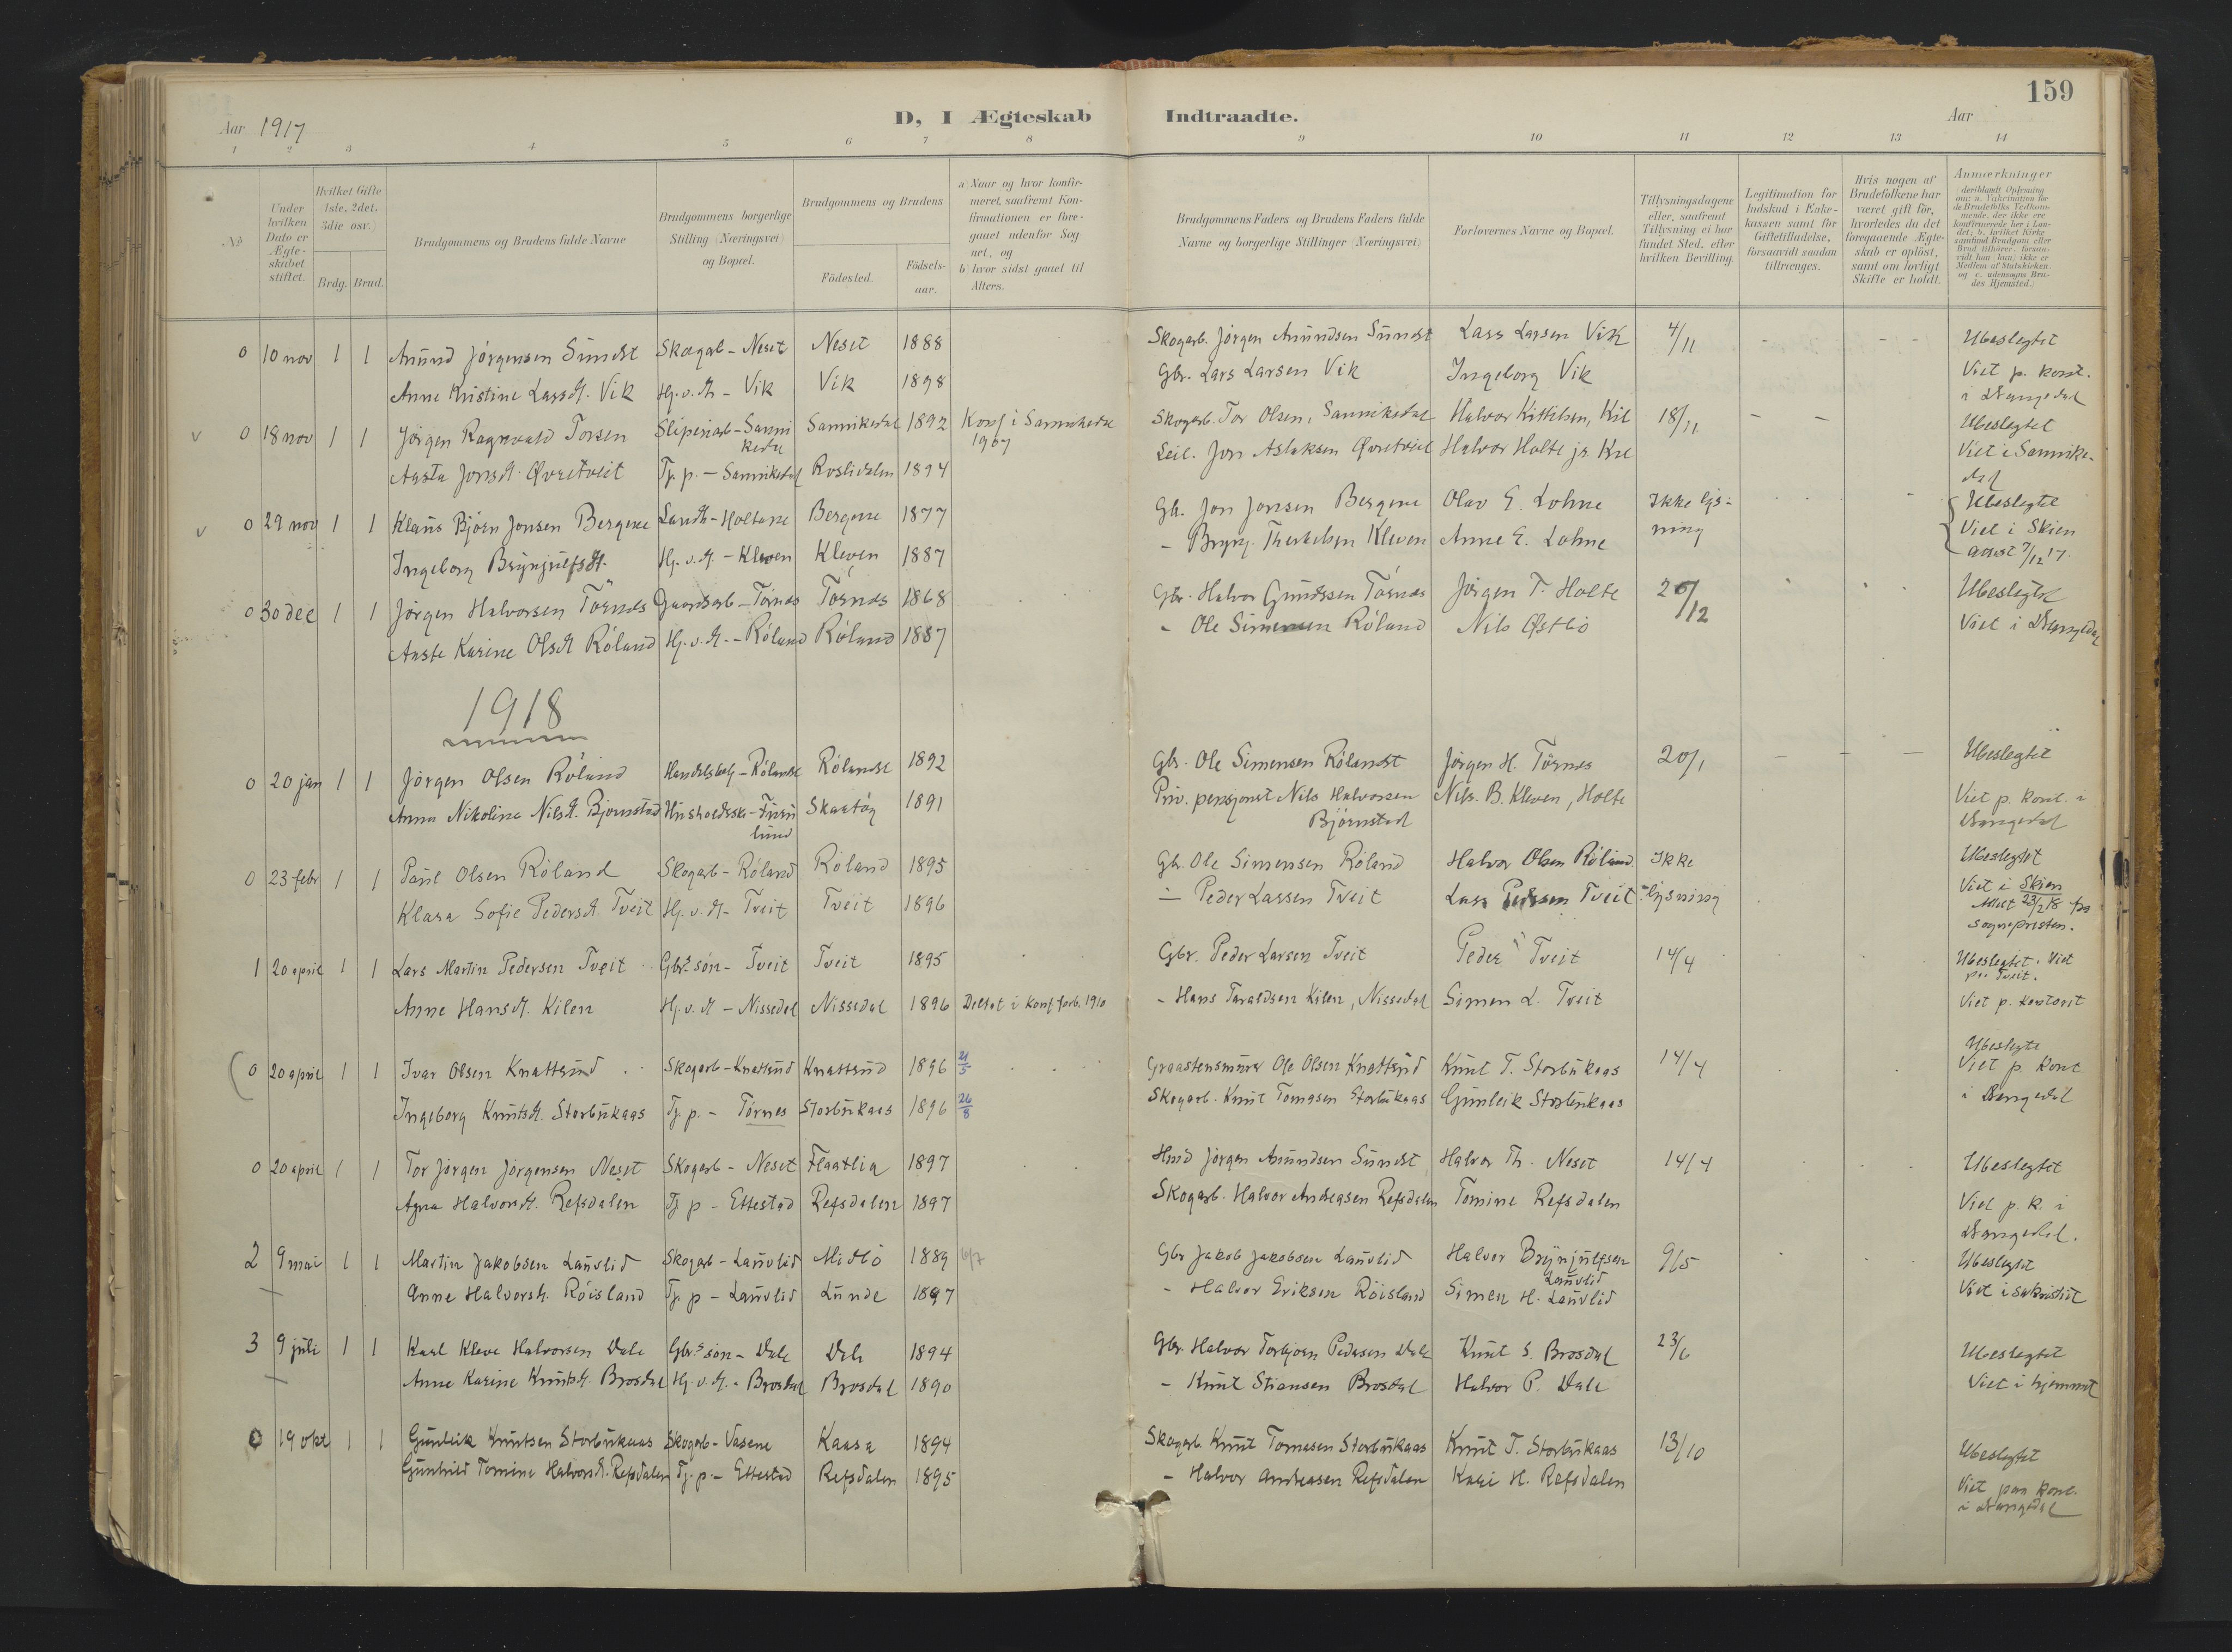 159
Aar 1917
D, I Ægteskab Indtraadte.
Aar
1 2 3 4 5 6 7 8 9 10 11 12 13 14
Nr.
Under hvilken Dato er Ægteskabet stiftet.
Hvilket Gifte 1ste, 2det, 3die osv.)
Brdg. Brud.
Brudgommens og Brudens fulde Navne
Brudgommens borgerlige Stilling (Næringsvei) og Bopæl.
Brudgommens og Brudens
Födested.
Födselsaar.
a) Naar og hvor konfirmeret, saafremt Konfirmationen er foregaaet udenfor Sognet, og
b) hvor sidst gaaet til Alters.
Brudgommens Faders og Brudens Faders fulde Navne og borgerlige Stillinger (Næringsvei)
Forlovernes Navne og Bopæl.
Tillysningsdagene eller, saafremt Tillysning ei har fundet Sted, efter hvilken Bevilling.
Legitimation for Indskud i Enkekassen samt for Giftetilladelse, forsaavidt saadan tiltrænges.
Hvis nogen af Brudefolkene har været gift för, hvorledes da det foregaaende Ægteskab er oplöst, samt om lovligt Skifte er holdt.
Anmærkninger
(deriblandt Oplysning om: a. Vakcination for de Brudefolks Vedkommende, der ikke ere konfirmerede her i Landet; b. hvilket Kirkesamfund Brudgom eller Brud tilhörer, forsaavidt han (hun) ikke er Medlem af Statskirken og c. udensogns Brudes Hjemsted.)
0 10 nov 1 1 Anund Jörgensen Sundst Skogarb - Neset Neset 1888 Skogarb. Jörgen Anundsen Sundst Lars Larsen Vik 4/11 - - - Ubeslegtet
Anne Kristine Larsdt. Vik Hj.v.dt - Vik Vik 1898 Gbr. Lars Larsen Vik Ingeborg Vik Viet p. kont.
i Drangedal
v 0 18 nov 1 1 Jörgen Ragnvald Torsen Sliperiarb - Sanni Sannikedal 1892 Konf i Sannikedal Skogarb. Tor Olsen, Sannikedal Halvor Kittilsen, Kil 18/11 - - Ubeslegtet
kedal 1907
Aasta Jonsdt. Øvretveit Tj. p. - Sannikedal Roslidalen 1894 Leil. Jon Aslaksen Øvretveit Halvor Holte jr. Kil Viet i Sannike-
dal
v 0 29 nov 1 1 Klaus Björn Jonsen Bergene Landh - Holtane Bergene 1877 Gbr. Jon Jonsen Bergene Olav E. Lohne Ikke lys- Ubeslegtet
ning Viet i Skien
Ingeborg Brynjulfsdt. Hj.v.dt. - Kleven Kleven 1887 - Brynj. Therkelsen Kleven Anne E. Lohne attest 7/12 17.
0 30 dec 1 1 Jörgen Halvorsen Törnes Gaardarb - Törnes Törnes 1868 Gbr. Halvor Gundssen Törnes Jörgen T. Holte 26/12 Ubeslegtet
Aaste Karine Olsdt Röland Hj.v.dt. - Röland Röland 1887 - Ole Simensen Röland Nils Østbö Viet i Drangedal
1918
0 20 jan 1 1 Jörgen Olsen Röland Handelsbetj - Rölandst Rölandst 1892 Gbr. Ole Simensen Rölandst Jörgen H. Törnes 20/1 - - - Ubeslegtet
Anna Nikoline Nilsdt. Bjornstad Husholdske - Furu Skaatöy 1891 Priv. pensjonist Nils Halvorsen Nils. B. Kleven, Holte Viet p. kont. i
lund Björnstad Drangedal
0 23 febr 1 1 Paul Olsen Röland Skogarb - Röland Röland 1895 Gbr. Ole Simensen Röland Halvor Olsen Röland Ikke Ubeslegtet
Klara Sofie Pedersdt Tveit Hj.v.dt - Tveit Tveit 1896 - Peder Larssen Tveit Lars Pedersen Tveit lysning Viet i Skien
Attest 23/2 18 fra
sognepresten.
1 20 april 1 1 Lars Martin Pedersen Tveit Gbrs sön - Tveit Tveit 1895 Gbr. Peder Larsen Tveit Peder Tveit 14/4 Ubeslegtet. Viet
paa Tveit.
Anne Hansdt. Kilen Hj.v.dt - Nissedal Nissedal 1896 Deltat i konf.forb. 1910 - Hans Taraldsen Kilen, Nissedal Simen L. Tveit Viet p. kontoret
0 20 april 1 1 Ivar Olsen Knattsund Skogarb - Knattsund Knattsund 1896 21/5 Graastensmurer Ole Olsen Knattsund Knut T. Storbukaas 14/4 Ubeslegte
Viet p. kont
Ingeborg Knutsdt. Storbukaas Tj p. - Törnes Storbukaas 1896 26/8 Skogarb. Knut Tomasen Storbukaas Gunleik Storbukaas i Drangedal
0 20 april 1 1 Tor Jörgen Jörgensen Neset Skogarb - Neset Flaatlia 1897 Hmd Jörgen Anundsen Sundst Halvor Th. Neset 14/4 Ubeslegtet
Agna Halvorsdt. Refsdalen Tj p - Ettestad Refsdalen 1897 Skogarb. Halvor Andreasen Refsdalen Tomine Refsdalen Viet p. k. i
Drangedal.
2 9 mai 1 1 Martin Jakobsen Lauvlid Skogarb - Lauvlid Midbö 1889 6/7 Gbr Jakob Jakobsen Lauvlid Halvor Brynjulfsen 9/5 Ubeslegtet
Lauvlid
Anne Halvorsdt. Röisland Tj. p - Lauvlid Lunde 1897 - Halvor Eriksen Röisland Simen H. Lauvlid Viet i sakristiet
3 9 juli 1 1 Karl Kleve Halvorsen Dale Gbrs sön - Dale Dale 1894 Gbr. Halvor Torbjörn Pedersen Dale Knut S. Brosdal 23/6 Ubeslegtet
Anne Karine Knutsdt. Brosdal Hj.v.dt. - Brosdal Brosdal 1890 - Knut Stiansen Brosdal Halvor P. Dale Viet i hjemmet
0 19 okt 1 1 Gunleik Knutsen Storbukaas Skogarb - Vasene Kaasa 1894 Skogarb. Knut Tomasen Storbukaas Knut T. Storbukaas 13/10 Ubeslegtet
Gunhild Tomine Halvorsdt. Refsdalen Tj. p. - Ettestad Refsdalen 1895 - Halvor Andreasen Refsdalen Kari H. Refsdalen Viet paa kont.
i Drangedal